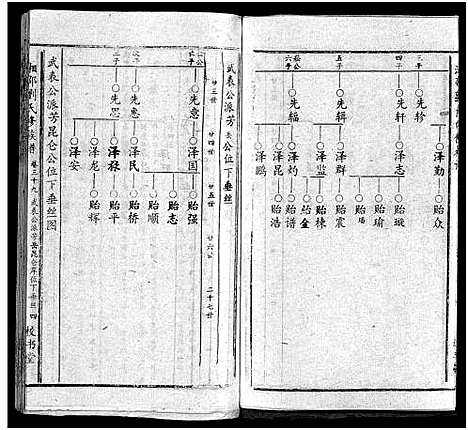 三子
四子
五子
六子
先轸
先轩
先辑
先辐
泽勤
泽志
泽群
泽灼
泽昆
泽鹏
贻众
贻璇
贻瑜
贻瑒
贻震
贻栋
贻金
贻谱
贻浩
武表公派芳岳公位下垂丝
廿三世
廿四世
廿五世
廿六公
二十七世
长子
次子
三子
先意
先惠
先恩
泽国
泽民
泽禄
泽龙
泽安
贻强
贻志
贻顺
贻桥
贻平
贻辉
武表公派芳昆仑公位下垂丝图
湘邵刘氏参族谱
卷三十九
武表公派芳岳昆仑房位下垂丝
四
校书堂